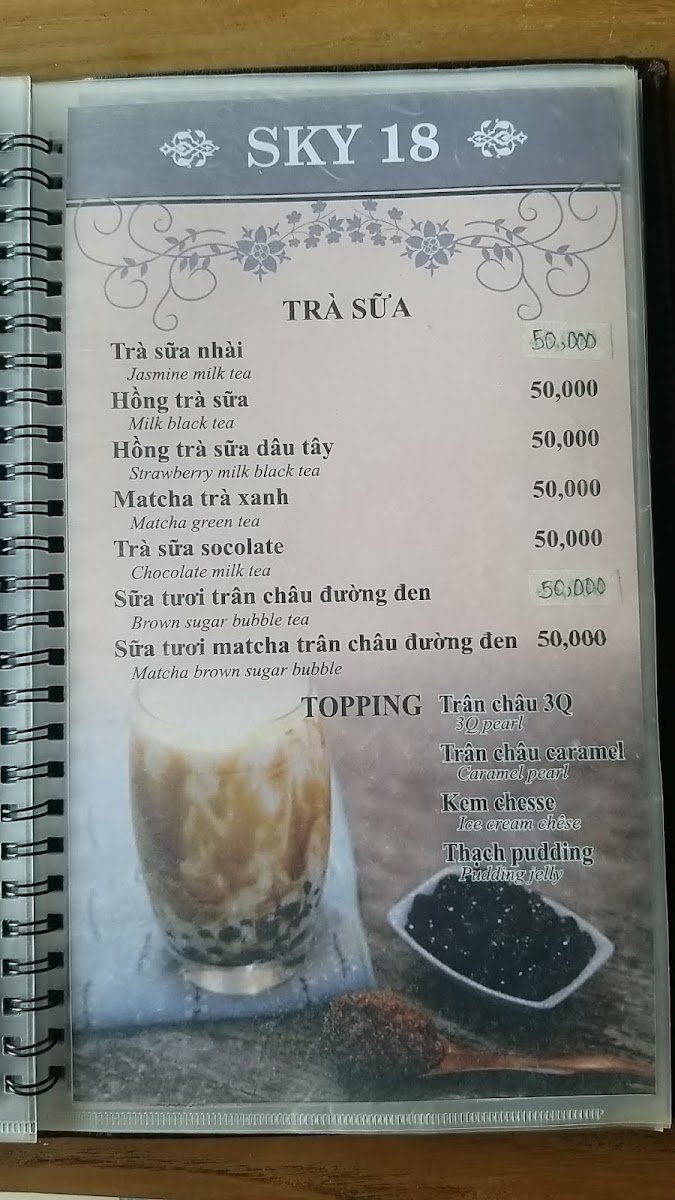 SKY 18
TRÀ SỮA
Trà sữa nhài 50,000
Jasmine milk tea
Hồng trà sữa 50,000
Milk black tea
Hồng trà sữa dâu tây 50,000
Strawberry milk black tea
Matcha trà xanh 50,000
Matcha green tea
Trà sữa socolate 50,000
Chocolate milk tea
Sữa tươi trân châu đường đen 50,000
Brown sugar bubble tea
Sữa tươi matcha trân châu đường đen 50,000
Matcha brown sugar bubble
TOPPING Trân châu 3Q
3Q pearl
Trân châu caramel
Caramel pearl
Kem chesse
Ice cream chêse
Thạch pudding
Pudding jelly